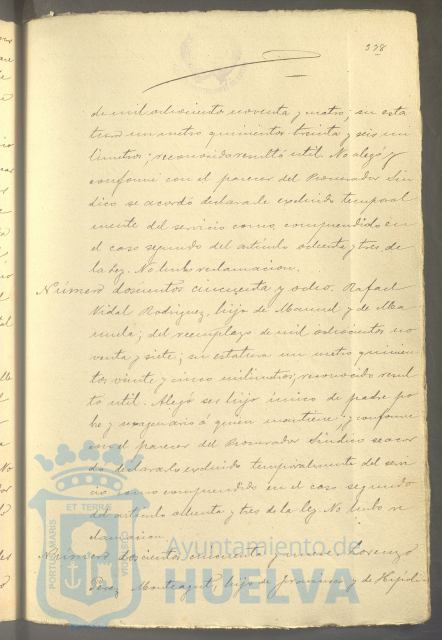 328
de mil ochociento noventa y cuatro; su esta
tura un metro quinientos treinta y seis mi
limetros; reconocido resultó util. No alegó y
conforme con el parecer del Procurador Sin
dico se acordó declararle excluido temporal
mente del servicio como comprendido en
el caso segundo del articulo ochenta y tres de
la Ley. No hubo reclamacion.
Número doscientos cincuenta y ocho. Rafael
Vidal Rodriguez, hijo de Manuel y de Ma
nuela; del reemplazo de mil ochocientos no
venta y siete; su estatura un metro quinien
tos veinte y cinco milimetros; reconocido resul
tó util. Alegó ser hijo único de padre po
bre y sexagenario á quien mantiene y conforme
con el parecer del Procurador Sindico se acor
dó declararlo excluido temporalmente del servi
cio como comprendido en el caso segundo
del articulo ochenta y tres de la ley. No hubo re
clamacion.
Número doscientos cincuenta y nueve. Lorenzo
Perez Monteagut, hijo de Francisco y de Hipólita
ET TERRAE
PORTUS MARIS
CUSTODIA
Ayuntamiento de
HUELVA